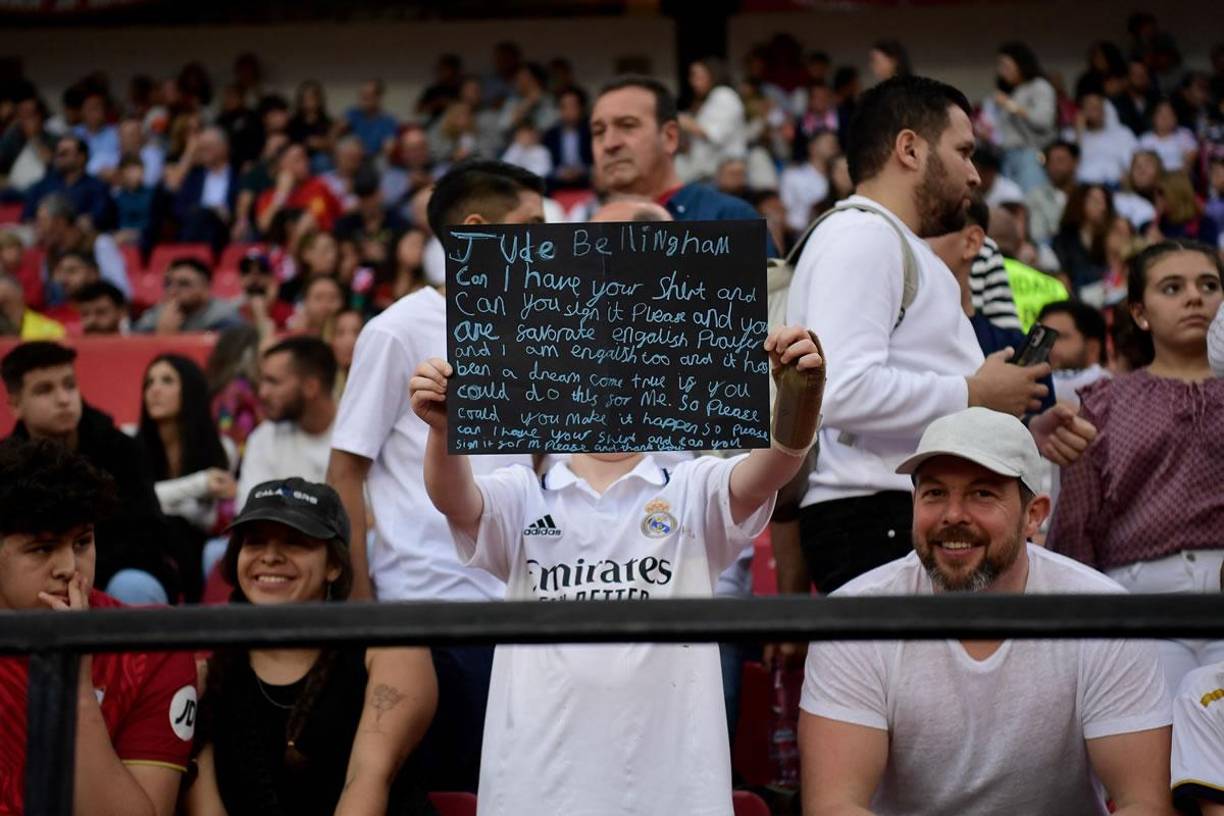 JUde Bellingham
Can I have your Shirt and
Can you sign it Please and you
are savorate engalish Plaifer
and I am engalish too and it has
been a dream come true if you
could do this for Me. So Please
could you Make it happen So Please
can I have your Shirt and can you
sign it for m Please and thank you
adidas
Emirates
FLY BETTER
JD